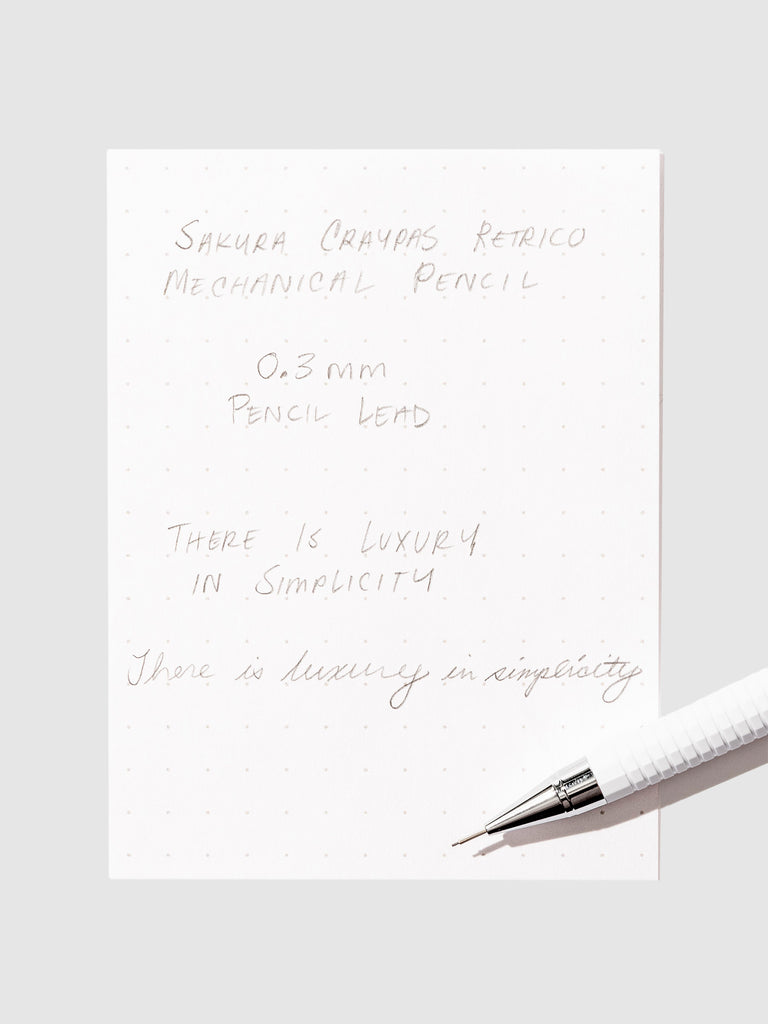 SAKURA CRAYPAS RETRICO
MECHANICAL PENCIL
0.3mm
PENCIL LEAD
THERE IS LUXURY
IN SIMPLICITY
There is luxury in simplicity